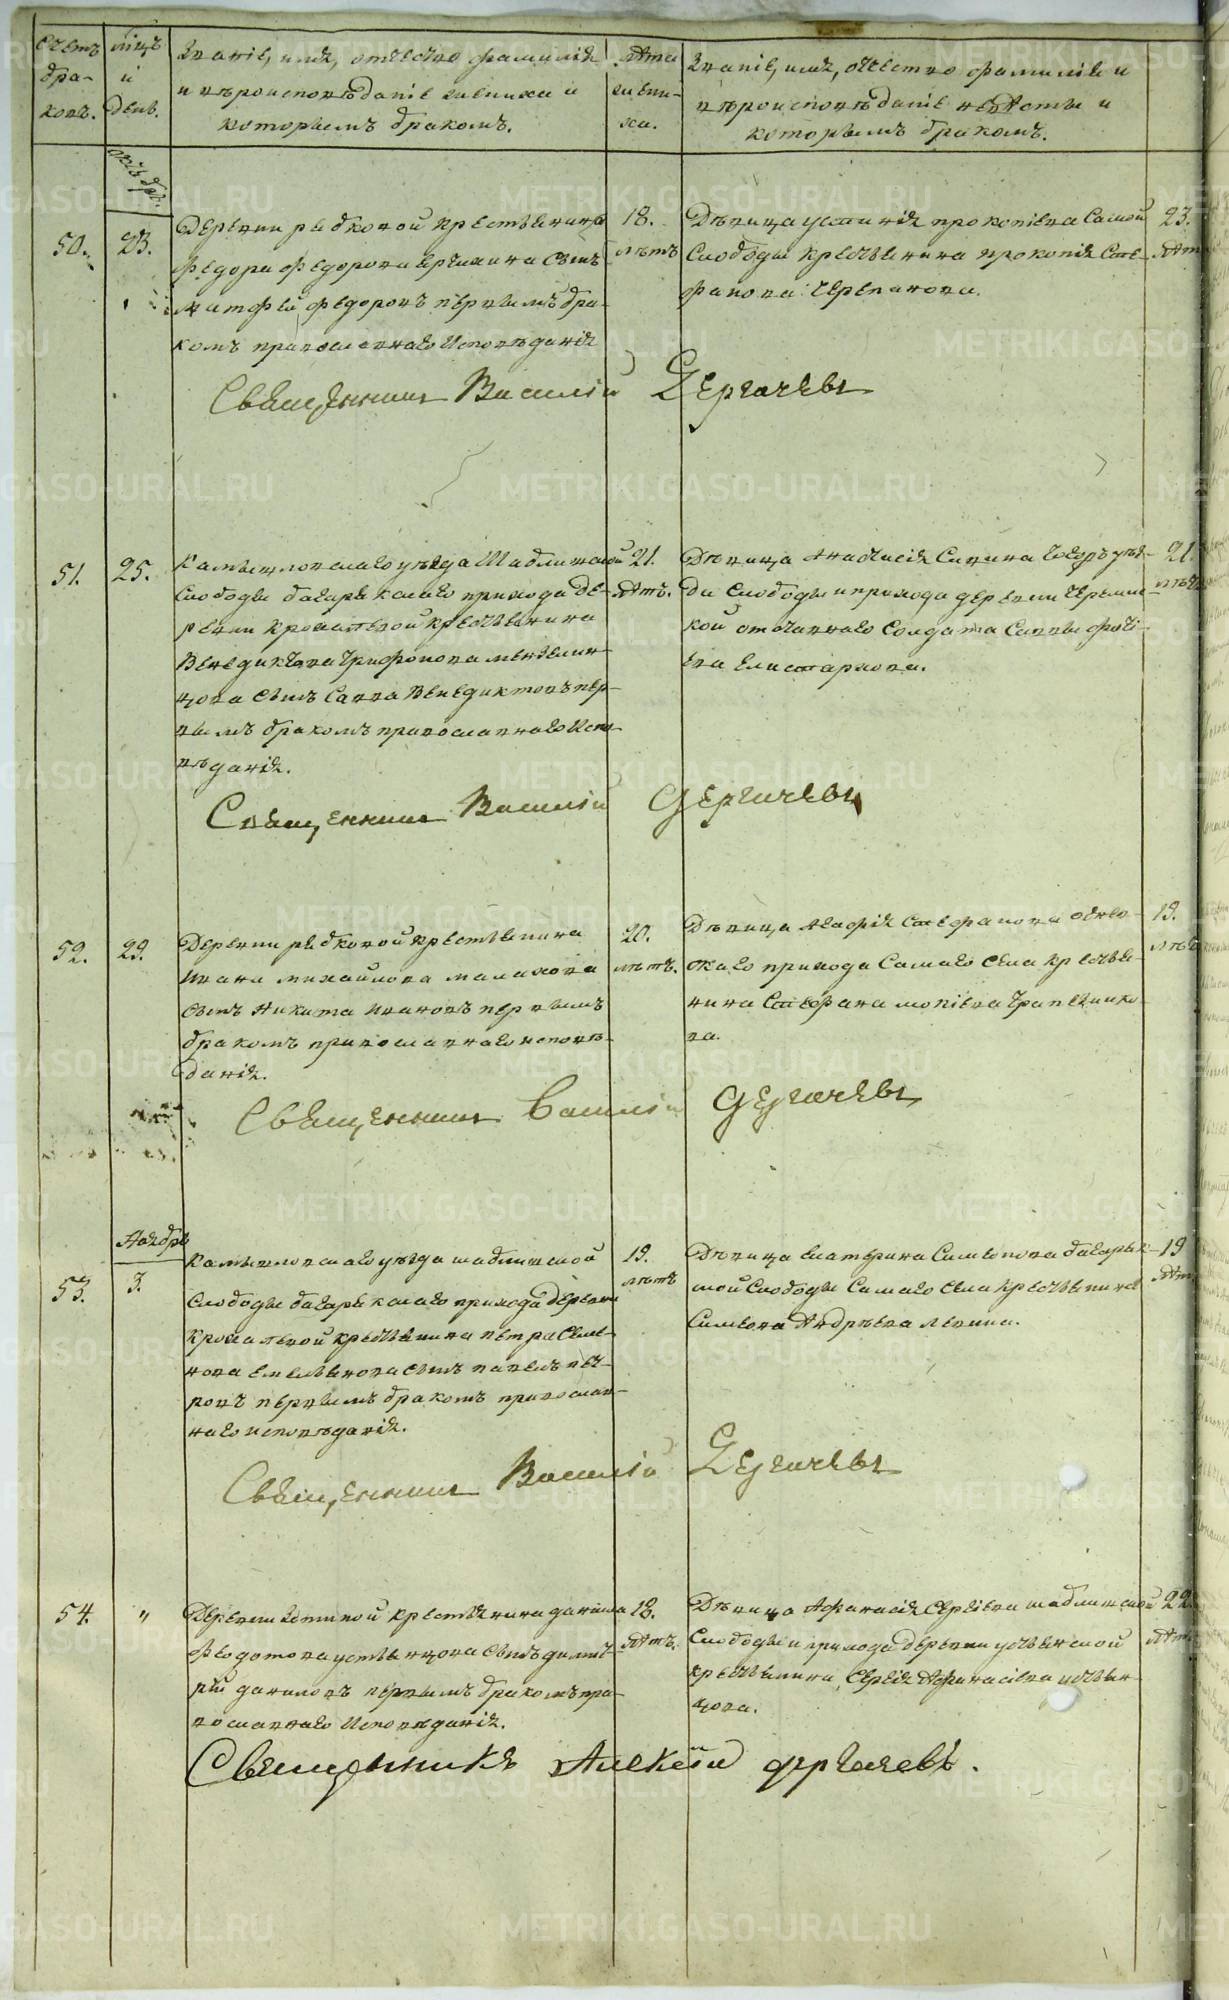 Счетъ бра- ковъ.
мѣцъ и день.
Званіе, имя, отчество фамилія
и вѣроисповѣданіе жениха и
которымъ бракомъ.
лѣта жени- ха.
Званіе, имя, отчество фамилія и
вѣроисповѣданіе невѣсты и
которымъ бракомъ.
50.
23.
Деревни рыбковой крестьянина
Федора Федорова сынъ
Матфей Федоровъ первымъ бра-
комъ православнаго Исповѣданія
18.
лѣтъ
Дѣвица устинія прокопіева Самой
Слободы крестьянина прокопія Сте-
фанова Черепанова.
23.
лѣт
Священникъ Василій Дергачевъ
51.
25.
Камышловскаго уѣзда Шаблишской
Слободы багарякскаго прихода де-
ревни кромалевой крестьянина
Венедикта Трифонова
сынъ Савва Венедиктовъ пер-
вымъ бракомъ православнаго Испо-
вѣданія.
21.
лѣтъ.
Дѣвица Анастасія Савина того уѣз-
да Слободы и прихода деревни
кой отставнаго Солдата Саввы
Елистархова.
21.
лѣтъ
Священникъ Василій Дергачевъ
52.
29.
Деревни рыбковой крестьянина
Ивана михайлова малахова
сынъ Никита Ивановъ первымъ
бракомъ православнаго исповѣ-
данія.
20.
лѣтъ.
Дѣвица Агафія Стефанова
скаго прихода Самаго Села крестья-
нина Стефана Трапезнико-
ва.
19.
лѣтъ
Священникъ Василій Дергачевъ
Ноября
53.
3.
Камышловскаго уѣзда шаблишской
Слободы багарякскаго прихода деревни
кромалевой крестьянина петра Семе-
нова емельянова сынъ павелъ пет-
ровъ первымъ бракомъ православ-
наго исповѣданія.
19.
лѣтъ
Дѣвица екатерина Симеонова багаряк-
ской Слободы Самаго Села крестьянина
Симеона Андрѣева левина.
19
лѣт
Священникъ Василій Дергачевъ
54.
"
Деревни зотиной крестьянина данила
Федотова устьянцова сынъ дмит-
рій даниловъ первымъ бракомъ пра-
вославнаго Исповѣданія.
18.
лѣтъ.
Дѣвица Афанасія Сергіева шаблишской
Слободы и прихода деревни устьянской
крестьянина Сергія Афанасіева устьян-
цова.
22.
лѣт
Священникъ Алексій Дергачевъ.
METRIKI.GASO-URAL.RU